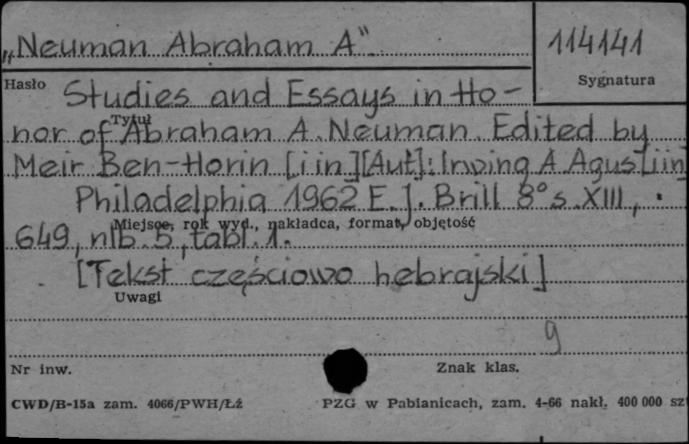 „Neuman Abraham A"
114141
Hasło
Sygnatura
Studies and Essays in Ho-
Tytuł
nor of Abraham A. Neuman. Edited by
Meir Ben-Horin [i in.][Aut]: Irving A Agus [i in]
Philadelphia 1962 E.J. Brill 8° s. XIII,
Miejsce, rok wyd., nakładca, format, objętość
649, nlb. 5, tabl. 1.
[Tekst częściowo hebrajski]
Uwagi
g
Nr inw.
Znak klas.
CWD/B-15a zam. 4066/PWH/Łż
PZG w Pabianicach, zam. 4-66 nakł. 400 000 szt